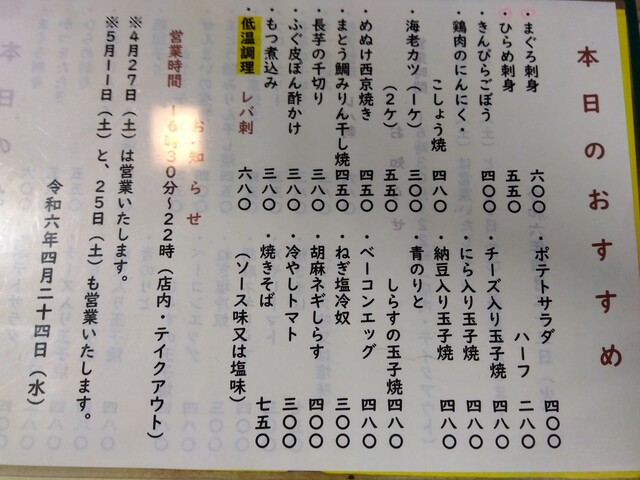 本日のおすすめ
・まぐろ刺身 六〇〇
・ひらめ刺身 五五〇
・きんぴらごぼう 四〇〇
・鶏肉のにんにく・
こしょう焼 四八〇
・海老カツ(一ケ) 三〇〇
(2ケ) 五五〇
・めぬけ西京焼き 四五〇
・まとう鯛みりん干し焼 四五〇
・長芋の千切り 三八〇
・ふぐ皮ぽん酢かけ 三八〇
・もつ煮込み 三八〇
・低温調理 レバ刺 六八〇
・ポテトサラダ 四〇〇
ハーフ 二八〇
・チーズ入り玉子焼 四八〇
・にら入り玉子焼 四八〇
・納豆入り玉子焼 四八〇
・青のりと
しらすの玉子焼 四八〇
・ベーコンエッグ 四八〇
・ねぎ塩冷奴 三〇〇
・胡麻ネギしらす 四〇〇
・冷やしトマト 三〇〇
・焼きそば 七五〇
(ソース味又は塩味)
お知らせ
営業時間 16時30分~22時(店内・テイクアウト)
※4月27日(土)は営業いたします。
※5月11日(土)と、25日(土)も営業いたします。
令和六年四月二十四日(水)